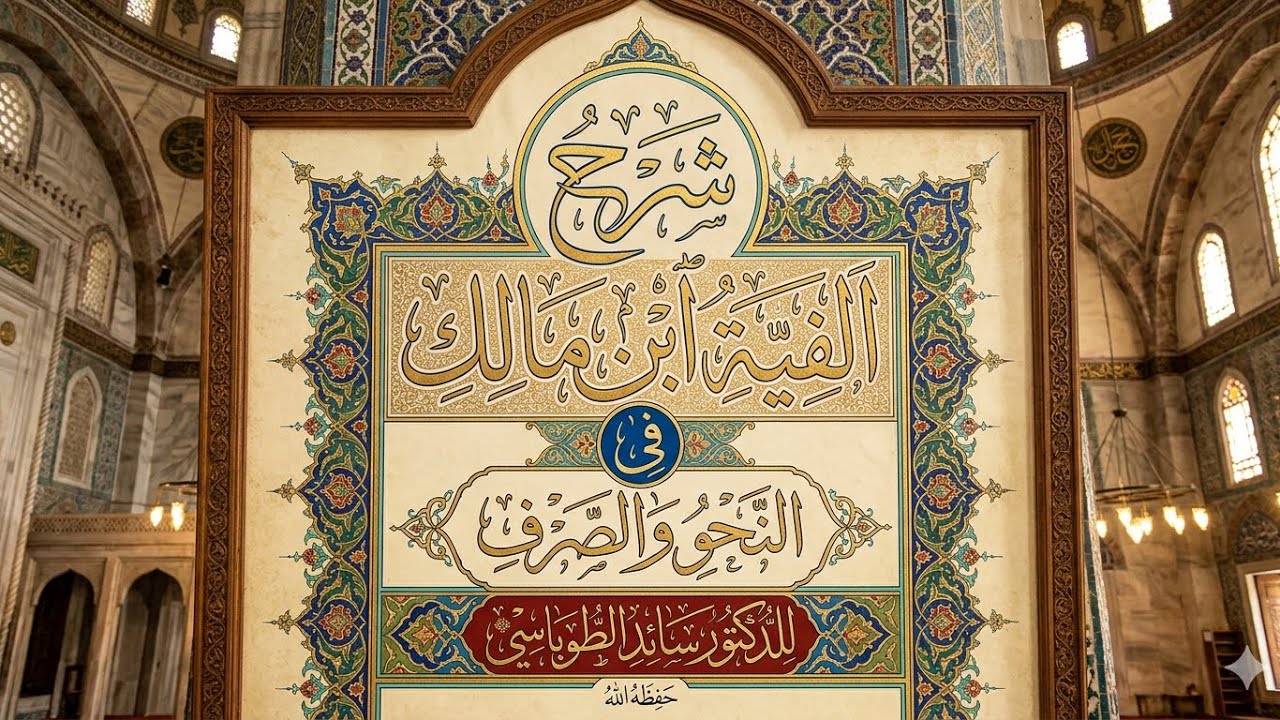 شَرْحُ
اَلفِيَّةِ ٱبْنِ مَالِكِ
فِي
النَّحْوِ وَالصَّرْفِ
لِلدُّكْتُورِ سَائِدِ الطُّوبَاسِيِّ
حَفِظَهُ اللّٰهُ